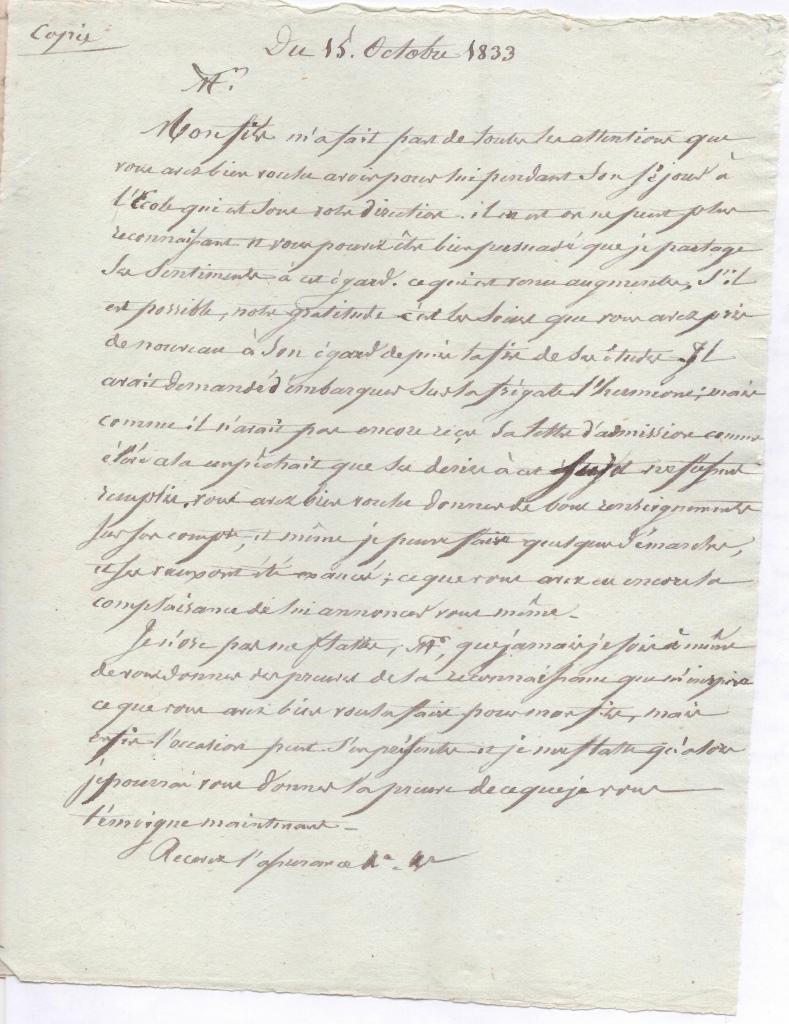 Copie
Du 15. Octobre 1833
Mr.
Mon fils m'a fait part de toutes les attentions que
vous avez bien voulu avoir pour lui pendant son séjour à
l'École qui est sous votre direction. il en est on ne peut plus
reconnaissant et vous pouvez être bien persuadé que je partage
ses sentiments à cet égard. ce qui est venu augmenter, s'il
est possible, notre gratitude c'est les soins que vous avez pris
de nouveau à son égard depuis la fin de ses études. Il
avait demandé d'embarquer sur la frégate l'hermione; mais
comme il n'avait pas encore reçu sa lettre d'admission comme
élève cela empêchait que ses desirs à cet sujet ne fussent
remplis. vous avez bien voulu donner de bons renseignements
sur son compte, et même je pense faire quelques démarches,
et ses vœux ont été exaucés; ce que vous avez eu encore la
complaisance de lui annoncer vous même.
Je n'ose pas me flatter, Mr, que jamais je sois à même
de vous donner des preuves de la reconnaissance que m'inspire
ce que vous avez bien voulu faire pour mon fils, mais
enfin l'occasion peut s'en présenter et je me flatte qu'alors
je pourrai vous donner la preuve de ce que je vous
témoigne maintenant.
Recevez l'assurance